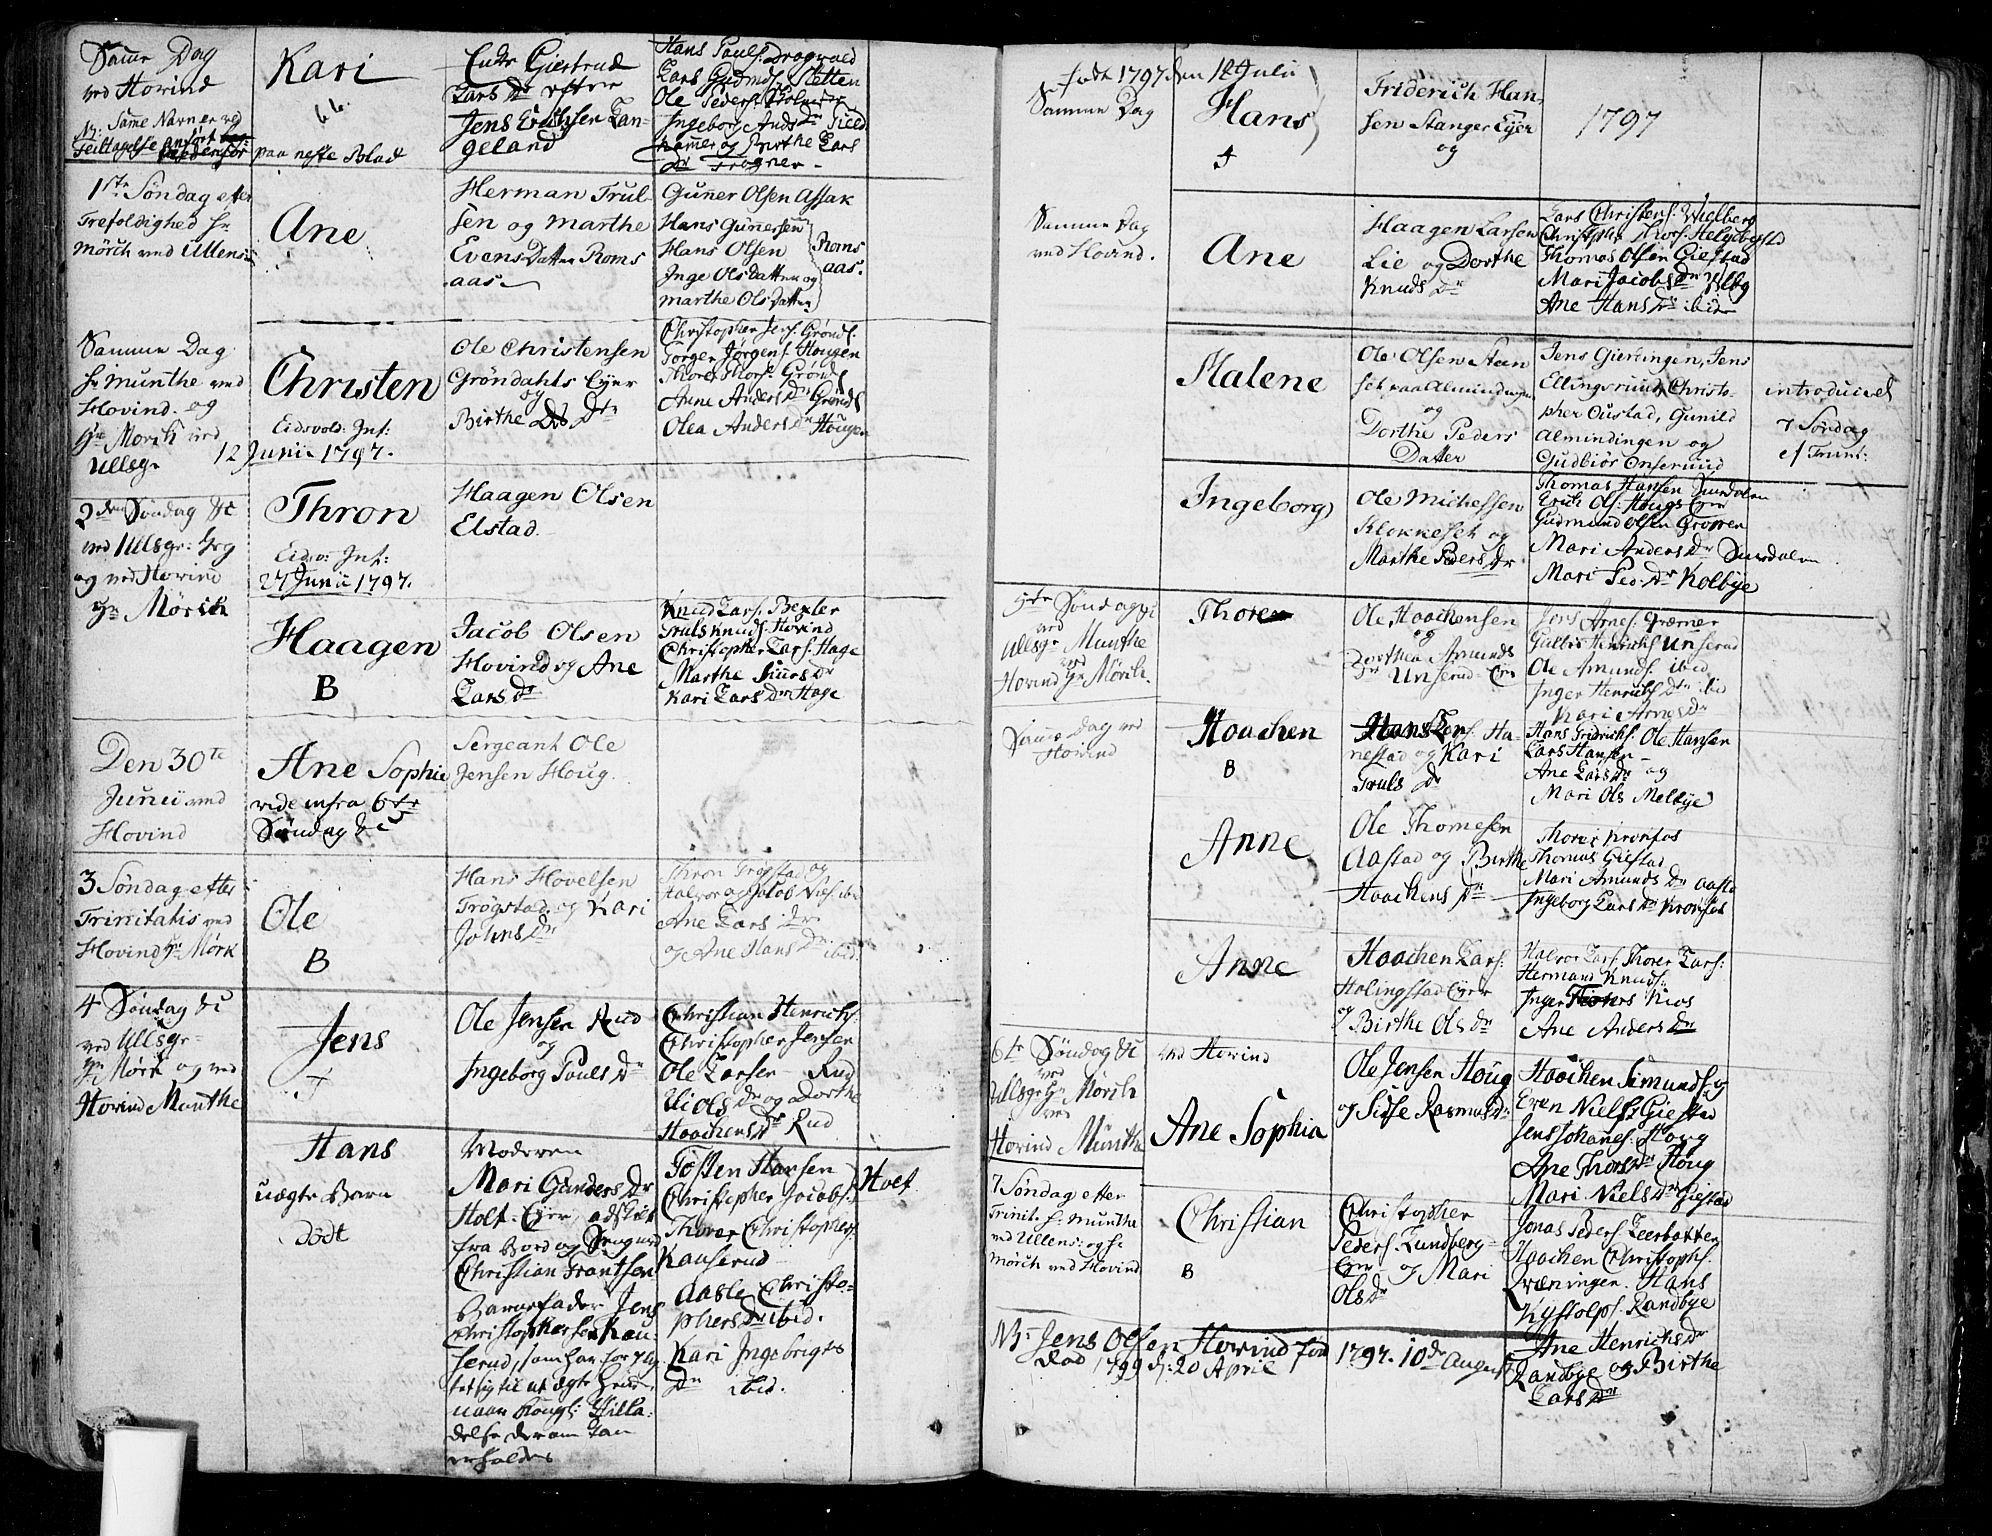 Same Dag
ved Hovind
NB: Same Navn er ved
Feiltagelse anført
Kari
66.
paa neste Blad
Enke Giertrud
Lars Dr efter
Jens Erichsen Lan-
geland
Hans Pauls. Dragvold
Lars Gudmds. Sletten
Ole Peders.
Ingeborg Ands Dr
og Birthe Lars
Dr Trogner
1ste Søndag efter
Trefoldighed Hr
Mörch ved Ullens
Ane
Herman Trul-
sen og Marthe
Evens Datter Roms
aas
Guner Olsen Assak
Hans Gunersen
Hans Olsen
Inge Ols Datter og
Marthe Ols Datter
Roms
aas.
Samme Dag
Hr Munthe ved
Hovind. og
Hr Morik ved
Ullsgr
Christen
Eidsvold: Inf:
12 Junii 1797.
Ole Christensen
Gröndahls Eyer
og
Birthe Dtr
Christopher Jens. Grönds.
Torger Jørgens. Hougen
Thore Thors. Grönd
Anne Anders Dr Grönds
Olea Anders Dr Hougen
2den Søndag &c
ved Ullsgr: Hr
og ved Hovind
Hr Mørik
Thron
Eidsv: Inf:
27 Junii 1797.
Haagen Olsen
Elstad
Haagen
B
Jacob Olsen
Hovind og Ane
Lars Dr
Knud Lars. Bexler
Truls Knuds. Hovind
Christopher Lars. Hage
Marthe Dr
Kari Lars Dr Hage
Den 30te
Junii ved
Hovind
Ane Sophie
vide infra 6te
Søndag &c
Sergeant Ole
Jensen Houg.
3 Søndag efter
Trinitatis ved
Hovind Hr Mørk
Ole
B
Hans Hovelsen
Trøgstad og Kari
Johns Dr
Thron Trøgstad og
Halvor og Jacob Niels. ibid
Ane Lars Dr
og Ane Hans Dr ibid.
4 Søndag &c
ved Ullsgr-
Hr Mørk og ved
Hovind Munthe
Jens
+
Ole Jensen Rud
og
Ingeborg Pauls Dr
Christian Henrichs.
Christopher Jensen
Ole Larsen Rud
Ols Dr og Dorthe
Haachens Dr Rud
Hans
uægte Barn
dødt
Moderen
Mari Gunders Dr
Holt-Eyer, adskilt
fra Bord og Seng
Christian Frantsen
Barnefader Jens
Christophersen Kau-
serud, som har for
tet sig til at ægte hende
naar Kongl: Tilla-
delse derom kan
erholdes
Tosten Hansen
Christopher Jacobs.
Thorer Christophers.
Kauserud
Aasle Christo-
phers Dr ibid.
Kari Ingebrigts
Dr ibid.
Holt
født 1797 den 14 Julii
Samme Dag
Hans
+
Friderich Han-
sen Stanger Eyer
og
1797
Samme Dag
ved Hovind.
Ane
Haagen Larsen
Lie og Dorthe
Knuds Dr
Lars Christens. Wielberg
Christoph. Thors.
Thomas Olsen Giestad
Mari Jacobs Dr
Ane Hans Dr ibid
Halene
Ole Olsen Steen
set paa Almindingen
og
Dorthe Peders
Datter
Jens Giertingen, Jens
Ellingsrud, Christo-
pher Oustad, Gunild
Almindingen og
Gudbiör Onserud
introduceret
7 Søndag
ef Trinit:
Ingeborg
Ole Michelsen
Klokkeset og
Marthe Peders Dr
Thomas Hansen Sundalen
Erich Ols. Hougs Eyer
Gudmund Olsen
Mari Anders Dr Sundalen
Mari Ped. Dr Kolbye
5te Søndag
ved
Ullsgr Munthe
ved
Hovind Hr Mörik.
Thore
Ole Haachensen
og
Dorthea Amunds
Dr Unserud Eier
Jens Arnes.
Henrichs. Unserud
Ole Amunds. ibid
Inger Henrichs Dr ibid
Kari Arnes Dr
Same Dag ved
Hovind
Haachen
B
Hans Ha-
nestad og Kari
Truls Dr
Hans Fridrichs. Ole Hansen
Lars Hansen
Ane Lars Dr og
Mari Ols Melbye
Anne
Ole Thomesen
Aastad og Birthe
Haachens Dr
Thorer Kronfos
Thomas Giestad
Mari Amunds Dr Aasta
Ingeborg Lars Dr Kronfos
Anne
Haachen Lars.
Holingstad Eyer
og Birthe Ols Dr
Halvor Lars. Thorer Lars:
Hermand Knuds.
Inger
Ane Anders Dr
6te Søndag &c
ved
Ullsgr Hr Mörik
ved
Hovind Munthe
ved Hovind
Ane Sophia
Ole Jensen Houg
og Sidse Rasmus Dr
Haachen Simunds. og
Even Niels. Giestad
Jens Johanes. Houg
Ane Thors Dr Houg
Mari Niels Dr Giestad
7 Søndag efter
Trinit: Hr Munthe
ved Ullens: og Hr
Mörch ved Hovind
Christian
B
Christopher
Peders. Lundberg-
Eyer og Mari
Ols Dr
Jonas Peders. Leerbatten
Haachen Christophs.
Hans
Kystolps. Randbye
Ane Henrichs Dr
Randbye og Birthe
Lars Dr
NB: Jens Olsen Hovind fød 1797. 10de August
død 1799 d: 20 April